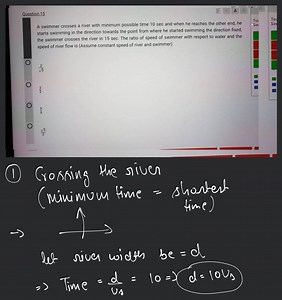 Question 15
A swimmer crosses a river with minimum possible time 10 sec and when he reaches the other end, he
starts swimming in the direction towards the point from where he started swimming the direction fixed,
the swimmer crosses the river in 15 sec. The ratio of speed of swimmer with respect to water and the
speed of river flow is (Assume constant speed of river and swimmer)
① Crossing the river
(minimum time = shortest
time)
→
let river width be = d
⇒ Time = d/Us = 10 ⇒ d = 10Us